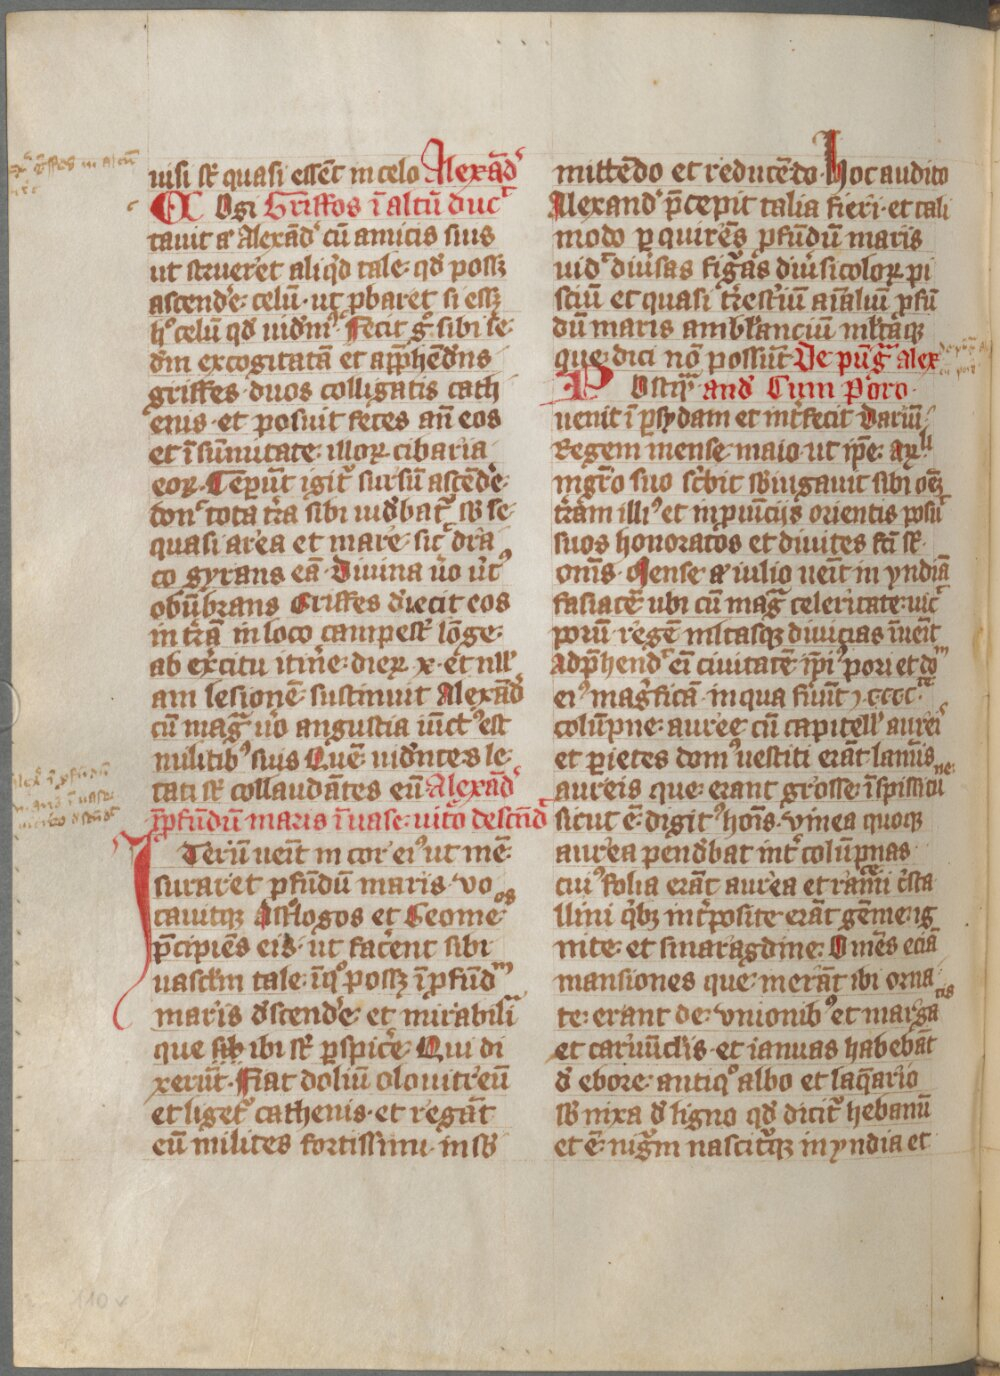 uisi st̄ quasi essēt in celo Alexād᷎
Cogi Griffos ī altū duc᷎
tauit aūt Alexād᷎ cū amicis suis
ut strueret aliqd̄ tale qd̄ possꝫ
ascend᷎e celū ut ꝓbaret si essꝫ
h᷎ celū qd̄ uidem᷎ Fecit g᷎ sibi se
dm̄ excogitatā et app̄hēd̄ns
griffes duos colligatis cath
enis et posuit fetes an̄ eos
et ī sūmitate illoꝝ cibaria
eoꝝ Ceperūt igit᷎ sursū ascēde᷎
don᷎ tota t᷎ra sibi uid̄bat᷎ sb̄ se
quasi area et mare sic᷎ dr̄a
co gyrans eā Diuina u᷎o u᷎t᷎
obūbrans Griffes d᷎iecit eos
in t᷎rā in loco campest᷎ lōge
ab ex᷎citu itin᷎e dieꝝ x et null᷎
am lesionē sustinuit Alexād᷎
cū mag᷎ u᷎o angustia iūct᷎ est
militib᷎ suis Quē uid̄ntes le
tati st̄ collaudātes eū Alexād᷎
ī ꝓfūdū maris ī uase uit᷎o descēd᷎
Iterū uēit in cor ei᷎ ut mē
suraret ꝓfūdū maris vo
cauitqꝫ Ast᷎logos et Geome᷎os
p̄cipiēs eis ut fac᷎ent sibi
uasclm̄ tale īq᷎ possꝫ ī ꝓfūdm̄
maris d̄scende᷎ et mirabilia
que sūt ibi st̄ ꝑspic᷎e Qui di
xerūt Fiat doliū olouitreū
et liget᷎ cathenis et regāt
eū milites fortissimi in sb̄
mittēdo et reducēdo Hoc audito
Alexand᷎ p̄cepit talia fieri et tali
modo ꝑquirēs ꝓfūdū maris
uid᷎ diu᷎sas fig᷎as diu᷎sicoloꝝ pi
sciū et quasi t᷎rest᷎iū aīaliū ꝓfū
dū maris amblanciū m̄ltaqꝫ
que dici nō possūt De pūg᷎ alex
Postq̄ᷓ and᷎ Cum Poro
uenit ī ꝑsydam et int᷎fecit Dariū
Regem mense maio ut ip̄e aꝝli
mgr̄o suo sc᷎bit sb̄iugauit sibi oēꝫ
t᷎rām illi᷎ et in ꝓuīcijs orientis posū᷎
suos honoratos et diuites fcī st̄
om̄s Mense aūt iulio uēit in yndiā
fasiacē ubi cū mag᷎ celeritate uic᷎
porū regē m̄ltasqꝫ diuicias īuēit
Adp̄hend᷎ eū ciuitatē ip̄i᷎ pori et dom̄
ei᷎ mag᷎ficā in qua fu᷎ūt cccc᷎
colūpne auree cū capitell᷎ aureis
et ꝑietes dom᷎ uestiti erāt lamīs
aureis que erant grosse ī spissitudine
sicut ē digit᷎ hoīs vinea quoqꝫ
aurea pend̄bat int᷎ colūpnas
cui᷎ folia erāt aurea et racemi c᷎sta
llini q᷎bꝫ int᷎posite erāt gēme ig
nite et smaragdine Omēs eciā
mansiones que inerāt ibi orna
te erant de vnionib᷎ et margatis
et carūclis et ianuas habebāt
d̄ ebore antiq᷎ albo et laq̄ario
sb̄nixa d̄ ligno qd̄ dicit᷎ hebanū
et ē nig᷎m nascit᷎qꝫ in yndia et
110 v